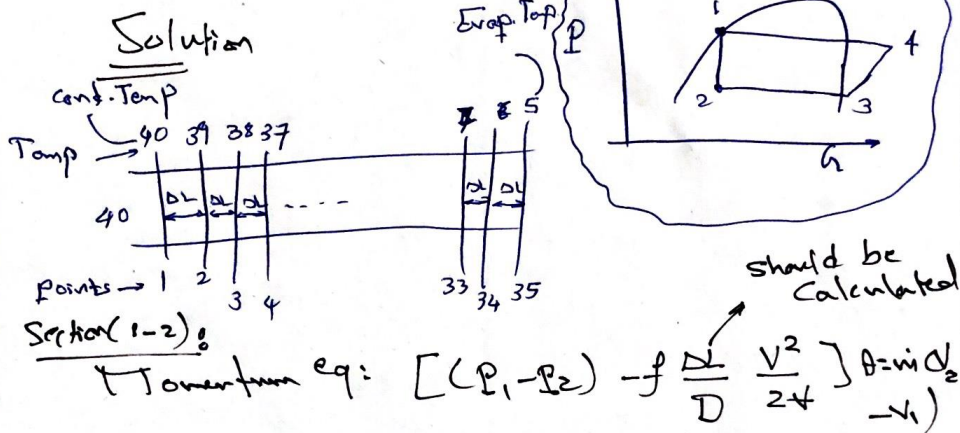 Solution
Evap. Temp
P
1
4
2
3
h
Cond. Temp
Temp → 40 39 38 37 7 6 5
40 ΔL ΔL ΔL ----- ΔL ΔL
Points → 1 2 3 4 33 34 35
should be
Calculated
Section (1-2):
Momentum eq: [(P₁-P₂) - f ΔL/D V²/2v] A = ṁ(V₂
-V₁)